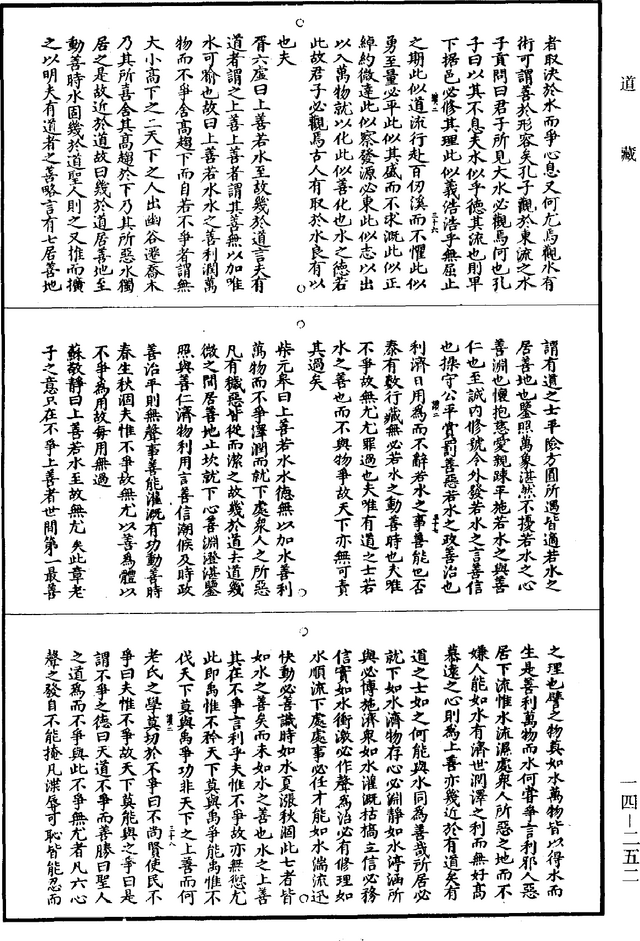 道藏
者取決於水而爭心息又何尤焉觀水有
術可謂善於形容矣孔子觀於東流之水
子貢問曰君子所見大水必觀焉何也孔
子曰以其不息夫水似乎德其流也則卑
下据邑必修其理此似義浩浩乎無屈止
之期此似道流行赴百仞溪而不懼此似
勇至量必平此似法盛而不求溉此似正
綽約微達此似察發源必東此似志以出
以入萬物就以化此似善化也水之德若
此故君子必觀焉古人有取於水良有以
也夫
胥六虛曰上善若水至故幾於道言夫有
道者謂之上善上善者謂其善無以加唯
水可喻也故曰上善若水水之善利潤萬
物而不爭舍高趨下而自若不爭者謂無
大小高下之二天下之人出幽谷遷喬木
乃其所喜舍其高趨於下乃其所惡水獨
居之是故近於道故曰幾於道居善地至
動善時水固幾於道聖人則之又推而擴
之以明夫有道者之善略言有七居善地
謂有道之士平險方圓所遇皆適若水之
居善地也鑒照萬象湛然不擾若水之心
善淵也懷抱慈愛親踈平施若水之與善
仁也至誠内修號令外發若水之言善信
也操守公平賞罰善惡若水之政善治也
利濟日用為而不辭若水之事善能也否
泰有數行藏無必若水之動善時也夫唯
不爭故無尤尤罪過也夫唯有道之士若
水之善也而不與物爭故天下亦無可責
其過矣
柴元皋曰上善若水水德無以加水善利
萬物而不爭澤潤而就下處衆人之所惡
凡有穢惡皆從而潔之故幾於道夫道幾
微之間居善地止坎就下心善淵澄湛鑒
照與善仁濟物利用言善信潮候及時政
善治平則無聲事善能灌溉有功動善時
春生秋涸夫惟不爭故無尤以善為體以
不爭為用故每用無過
蘇敬靜曰上善若水至故無尤矣此章老
子之意只在不爭上善者世間第一最善
之理也譬之物莫如水萬物皆以得水而
生是善利萬物而水何嘗爭言利邪人惡
居下流惟水流濕處衆人所惡之地而不
嫌人能如水有濟世潤澤之利而無好高
慕遠之心則為上善亦幾近於有道矣有
道之士如之何能與水同為善哉所居必
就下如水濟物存心必淵靜如水渟涵所
與必博施濟衆如水灌溉枯槁立信必務
信實如水衝激必作聲為治必有修理如
水順流下處處事必任才能如水湍流迅
快動必善識時如水夏漲秋涸此七者皆
如水之善矣而未如水之善也水之上善
其在不爭言利乎夫惟不爭故亦無愆尤
此即禹惟不矜天下莫與禹爭能禹惟不
伐天下莫與禹爭功非天下之上善而何
老氏之學莫切於不爭曰不尚賢使民不
爭曰夫惟不爭故天下莫能與之爭曰是
謂不爭之德曰天道不爭而善勝曰聖人
之道為而不爭與此不爭無尤者凡六心
聲之發自不能掩凡洪辱可恥皆能忍而
一四—二五二